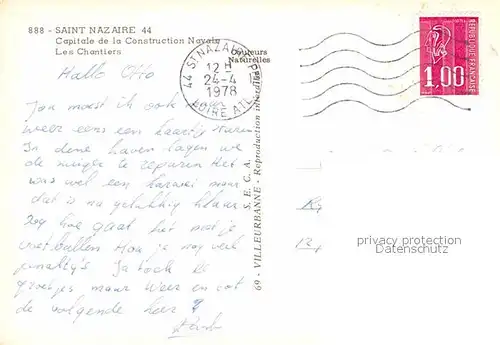 888 - SAINT NAZAIRE 44
Capitale de la Construction Navale
Les Chantiers
Couleurs
Naturelles
44 ST NAZAIRE
12 H
24-4
1978
LOIRE ATL.
REPUBLIQUE FRANÇAISE
1,00
Hallo Otto
Jou moest ik ook maar
weer eens een kaartje sturen
In deze haven lagen we
de te repareren Het
was wel een karwei maar
dat is nu gelukkig klaar
Zeg hoe gaat het met je
voetballen Hou je nog veel
penalty's Ja toch
groetjes maar weer en tot
de volgende keer
S.E.C.A.
69 - VILLEURBANNE - Reproduction interdite
privacy protection
Datenschutz